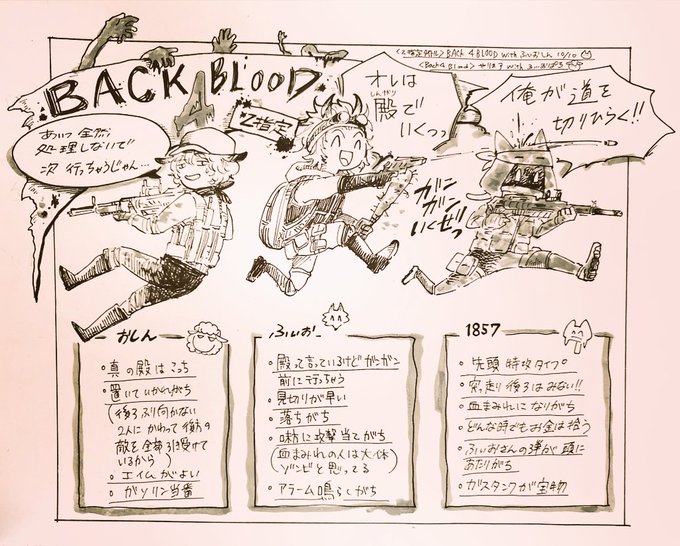 <Z指定部> BACK 4 BLOOD with ふぃおしん 10/10
<Back4 Blood>
BACK 4 BLOOD
Z指定
あいつ全然
処理しないで
次行っちゃうじゃん…
オレは
殿で
しんがり
いくっっ
俺が道を
切りひらく!!
ガン
ガン
いくぜっ
おしん
・真の殿はこっち
・置いていかれがち
(後ろふり向かない
2人にかわって後方の
敵を全部引き受けて
いるから)
・エイムがよい
・ガソリン当番
ふぃお
・殿って言っているけどガンガン
前に行っちゃう
・見切りが早い
・落ちがち
・味方に攻撃当てがち
(血まみれの人は大体
ゾンビと思ってる)
・アラーム鳴らしがち
1857
・先頭特攻タイプ
・突っ走り後ろはみない!!
・血まみれになりがち
・どんな時でもお金は拾う
・ふぃおさんの弾が頭に
あたりがち
・ガスタンクが宝物